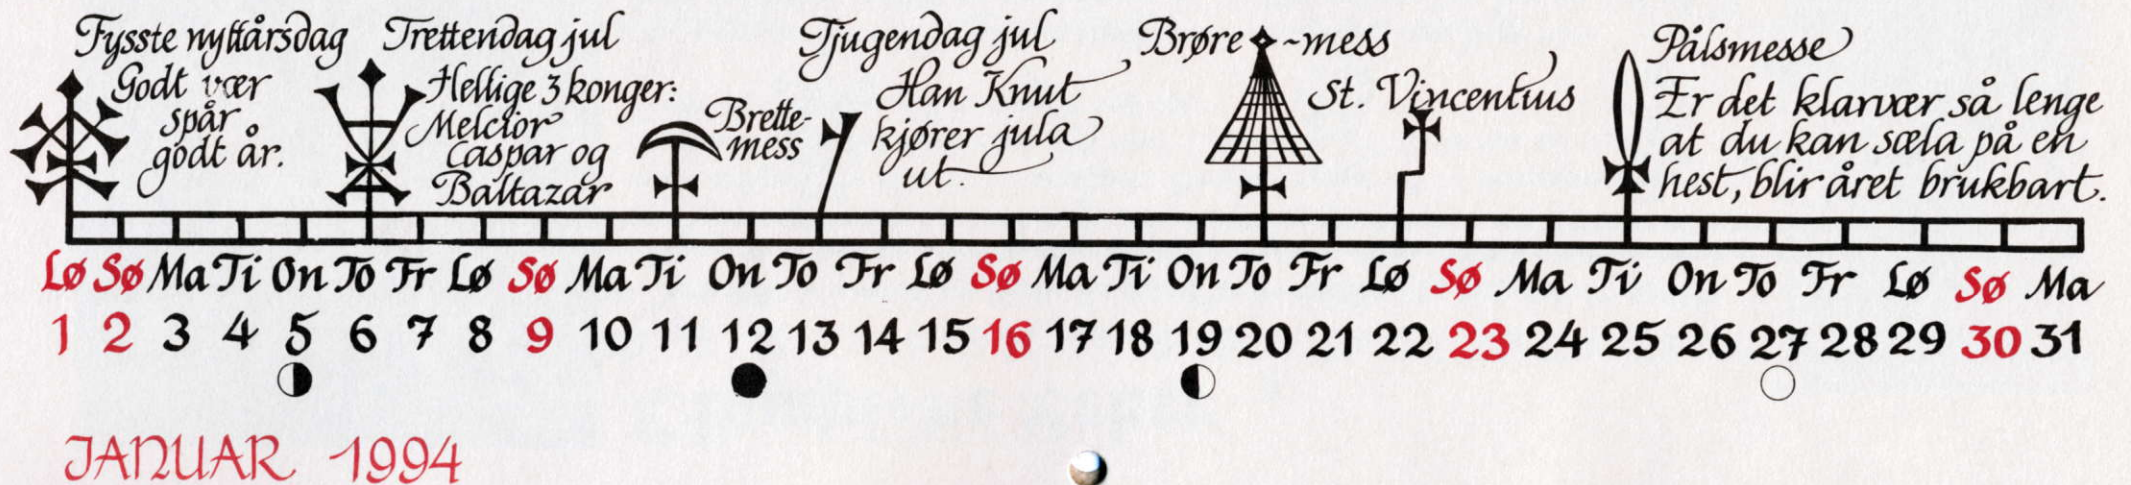 Fysste nyttårsdag
Godt vær
spår
godt år.
Trettendag jul
Hellige 3 konger:
Melcior
Caspar og
Baltazar
Brette-
mess
Tjugendag jul
Han Knut
kjører jula
ut.
Brøre-mess
St. Vincentius
Pålsmesse
Er det klarvær så lenge
at du kan sæla på en
hest, blir året brukbart.
Lø Sø Ma Ti On To Fr Lø Sø Ma Ti On To Fr Lø Sø Ma Ti On To Fr Lø Sø Ma Ti On To Fr Lø Sø Ma
1 2 3 4 5 6 7 8 9 10 11 12 13 14 15 16 17 18 19 20 21 22 23 24 25 26 27 28 29 30 31
JANUAR 1994